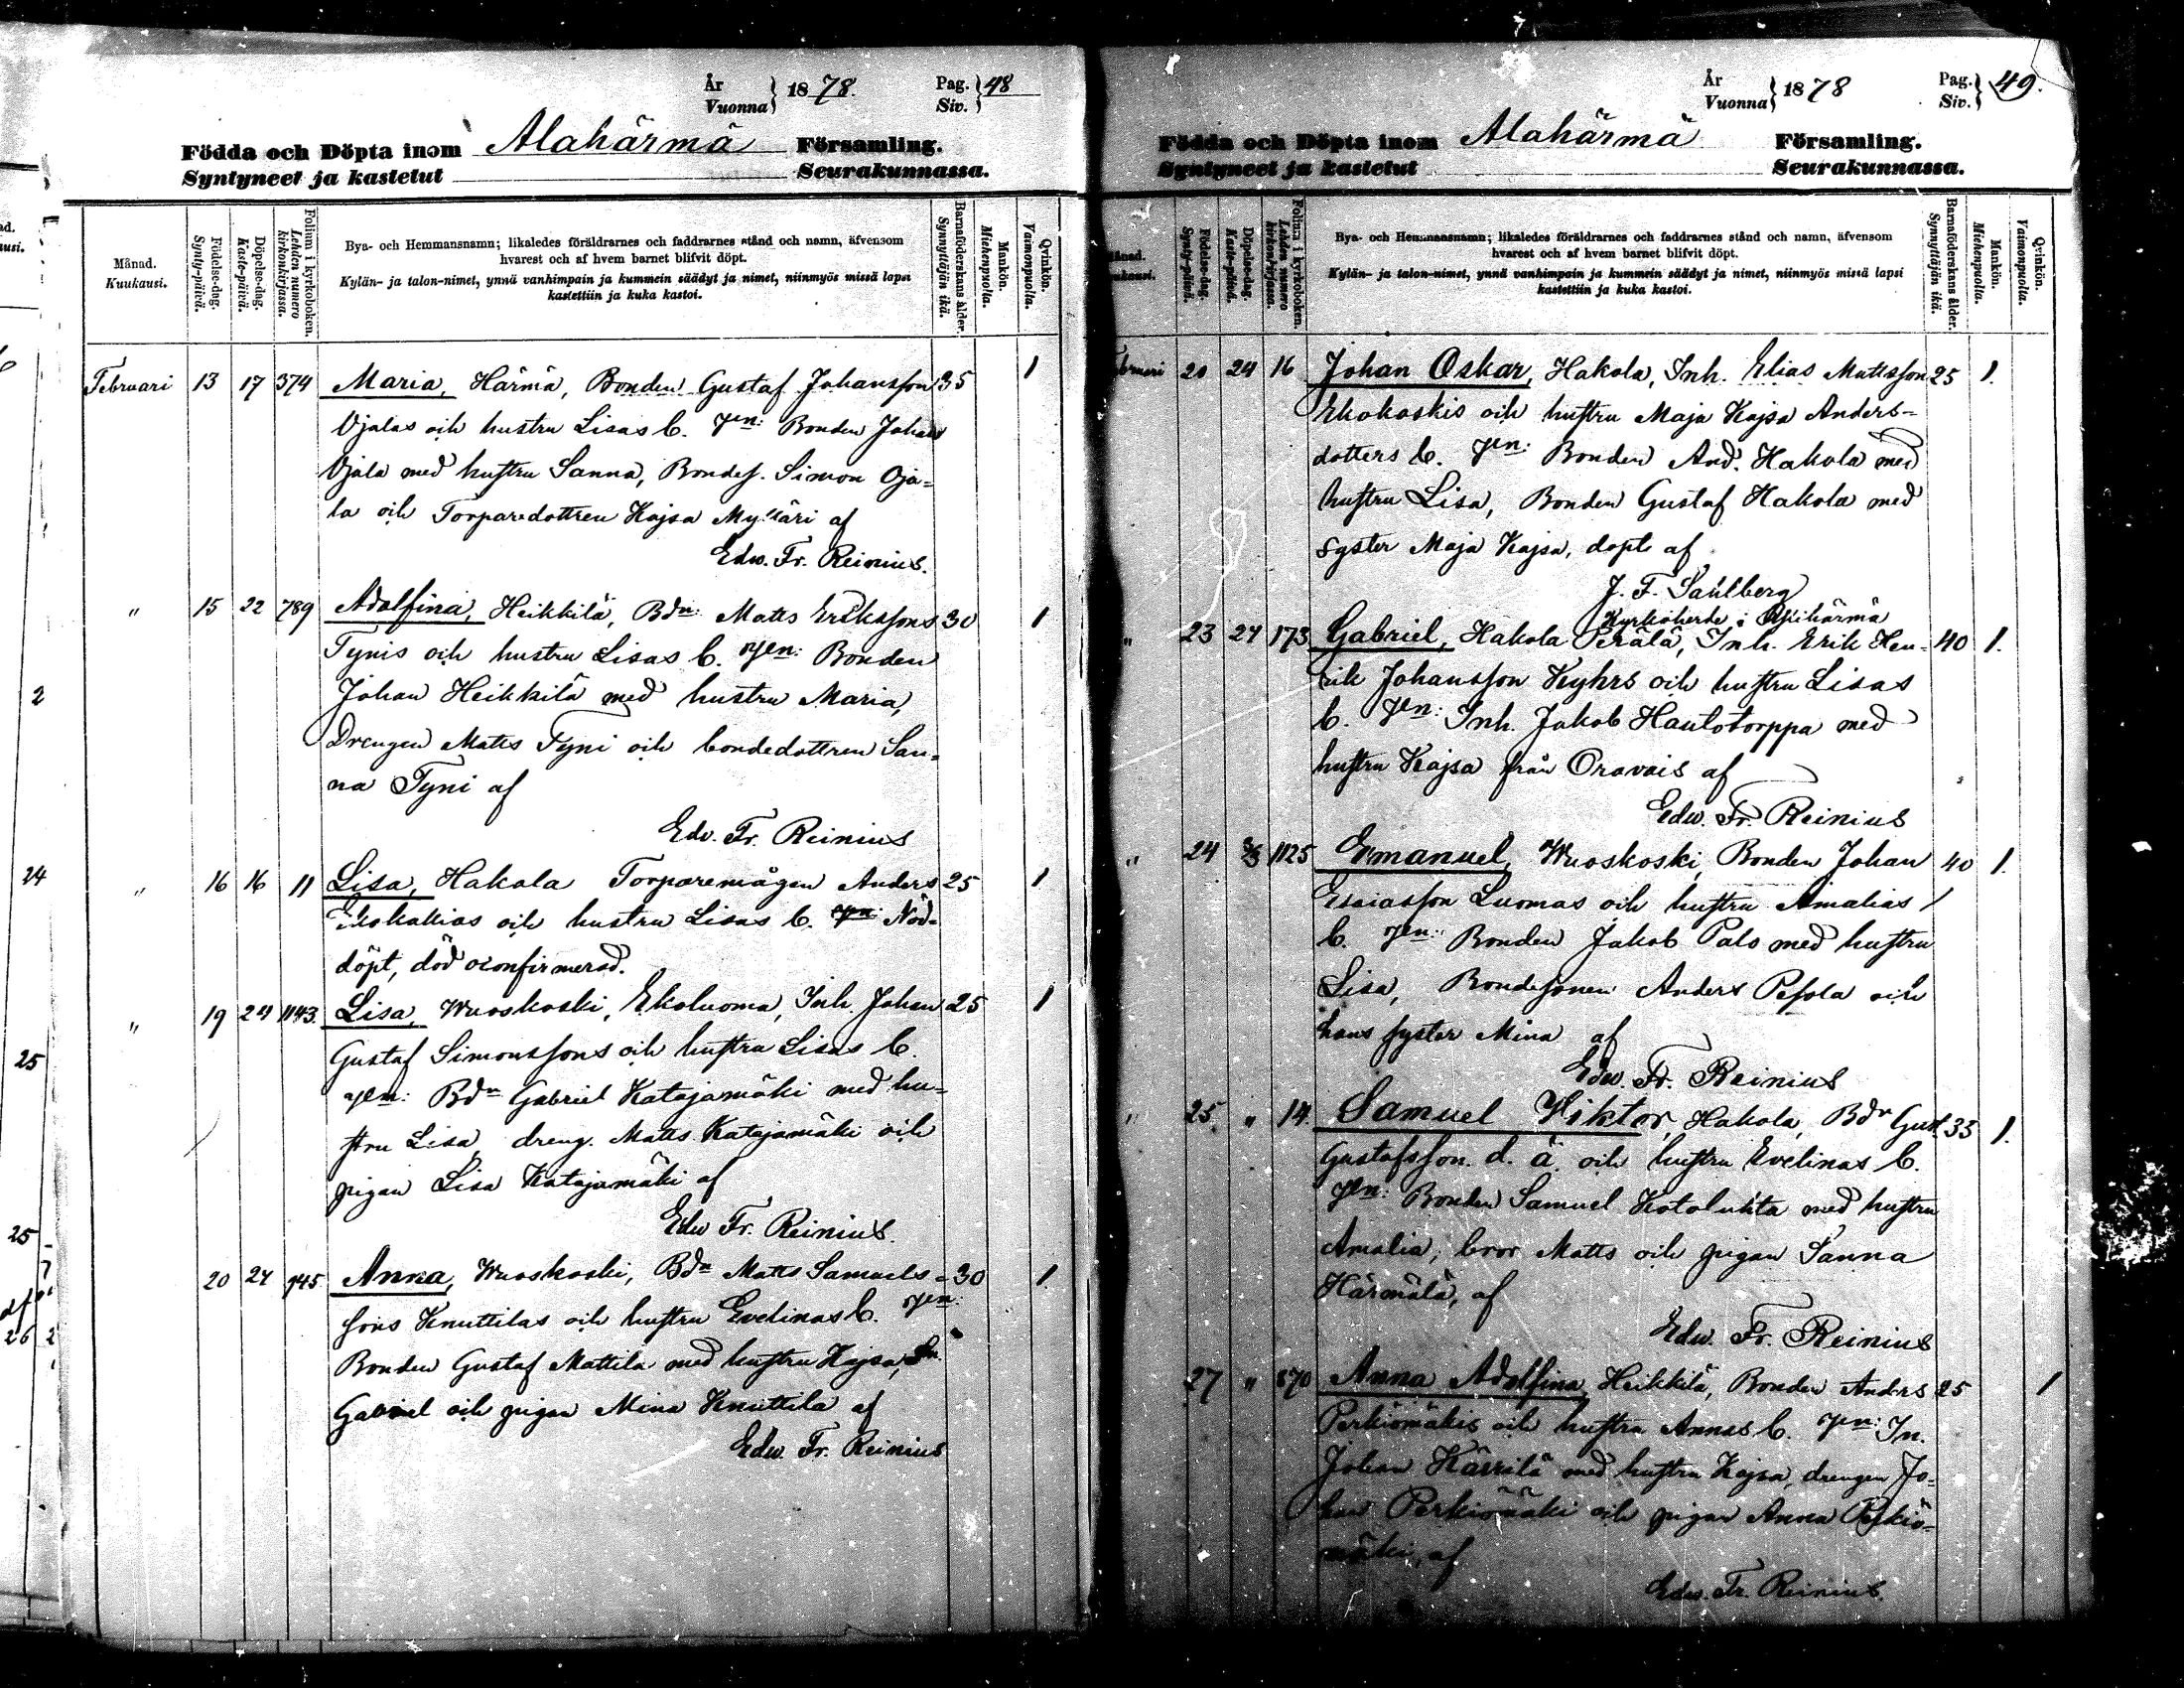 År
Vuonna } 1878.
Pag.
Siv. } 48
Födda och Döpta inom Alahärmä Församling.
Syntyneet ja kastetut Seurakunnassa.
Månad.
Kuukausi.
Födelse-dag.
Synty-päivä.
Döpelse-dag.
Kaste-päivä.
Folium i kyrkoboken.
Lehden numero kirkonkirjassa.
Bya- och Hemmansnamn; likaledes föräldrarnes och faddrarnes stånd och namn, äfvensom
hvarest och af hvem barnet blifvit döpt.
Kylän- ja talon-nimet, ynnä vanhimpain ja kummein säädyt ja nimet, niinmyös missä lapsi
kastettiin ja kuka kastoi.
Barnaföderskans ålder.
Synnyttäjän ikä.
Mankön.
Miehenpuolta.
Qvinkön.
Vaimonpuolta.
Februari 13 17 374 Maria, Härmä, Bonden Gustaf Johansson 35 1
Ojalas och hustru Lisas b. Jen: Bonden Johan
Ojala med hustru Sanna, Bondes. Simon Oja-
la och Torparedottren Kajsa af
Edw. Fr. Reinius.
" 15 22 789 Adolfina, Heikkilä, Bdn Matts Erikssons 30 1
Tynis och hustru Lisas b. Jen: Bonden
Johan Heikkilä med hustru Maria,
Drengen Matts Tyni och bondedottren San-
na Tyni af
Edv. Fr. Reinius
" 16 16 11 Lisa, Hakola Torparemågen Anders 25 1
och hustru Lisas b. Nöd-
döpt, död oconfirmerad.
" 19 24 1143. Lisa, Wuoskoski, Ekoluoma, Inh. Johan 25 1
Gustaf Simonssons och hustru Lisas b.
Jen: Bdn Gabriel Katajamäki med hu-
stru Lisa, dreng. Matts Katajamäki och
pigan Lisa Katajamäki af
Edw Fr. Reinius.
20 24 Anna, Wuoskoski, Bdn Matts Samuels- 30 1.
sons Knuttilas och hustru Evelinas b. Jen:
Bonden Gustaf Mattila med hustru Kajsa,
Gabriel och pigan Mina Knuttila af
Edw. Fr. Reinius
År
Vuonna } 1878
Pag.
Siv. } 49.
Födda och Döpta inom Alahärmä Församling.
Syntyneet ja kastetut Seurakunnassa.
Månad.
Kuukausi.
Födelse-dag.
Synty-päivä.
Döpelse-dag.
Kaste-päivä.
Folium i kyrkoboken.
Lehden numero kirkonkirjassa.
Bya- och Hemmansnamn; likaledes föräldrarnes och faddrarnes stånd och namn, äfvensom
hvarest och af hvem barnet blifvit döpt.
Kylän- ja talon-nimet, ynnä vanhimpain ja kummein säädyt ja nimet, niinmyös missä lapsi
kastettiin ja kuka kastoi.
Barnaföderskans ålder.
Synnyttäjän ikä.
Mankön.
Miehenpuolta.
Qvinkön.
Vaimonpuolta.
Februari 20 24 16 Johan Oskar, Hakola, Inh. Elias Mattsson 25 1.
Ekokoskis och hustru Maja Kajsa Anders-
dotters b. Jen: Bonden And. Hakola med
hustru Lisa, Bonden Gustaf Hakola med
syster Maja Kajsa, döpt af
J. F. Sahlberg
Kyrkoherde i Ylihärmä
" 23 24 173 Gabriel, Hakola Perälä, Inh. Erik Hen- 40 1.
rik Johansson Keyhrs och hustru Lisas
b. Jen: Inh. Jakob Hautotorppa med
hustru Kajsa från Oravais af
Edw. Fr. Reinius
" 24 3/3 1125 Emanuel, Wuoskoski, Bonden Johan 40 1.
Esaiasson Luomas och hustru Amalias
b. Jen: Bonden Jakob Palo med hustru
Lisa, Bondesonen Anders Pesola och
hans syster Mina af
Edw. Fr. Reinius
" 25 " 14. Samuel Viktor, Hakola, Bdn Gust. 35 1.
Gustafsson d. ä. och hustru Evelinas b.
Jen: Bonden Samuel Kotoluhta med hustru
Amalia, bror Matts och pigan Sanna
Härmälä, af
Edw. Fr. Reinius
27 " 870 Anna Adolfina, Heikkilä, Bonden Anders 25 1
Perkiömäkis och hustru Annas b. Jen: In.
Johan Härsilä med hustru Kajsa, drengen Jo-
han Perkiömäki och pigan Anna Perkiö-
mäki, af
Edw. Fr. Reinius.